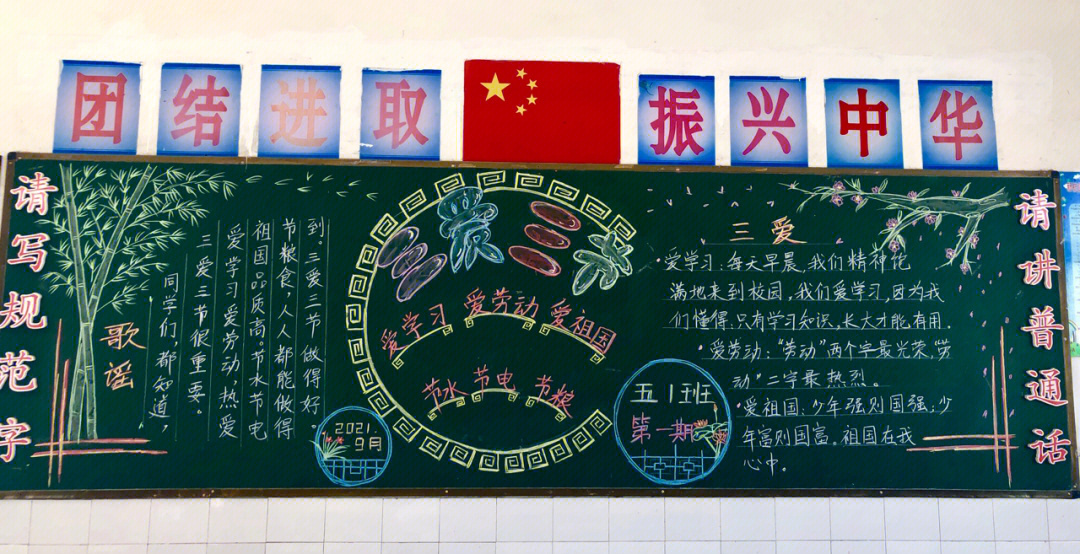 团结进取
振兴中华
请写规范字
歌谣
同学们,都知道,
三爱三节很重要。
爱学习爱劳动,热爱
祖国品质高。节水节电
节粮食,人人都能做得
到。三爱三节做得好。
2021.
9月
三爱三节
爱学习 爱劳动 爱祖国
节水 节电 节粮
五1班
第一期
三爱
·爱学习:每天早晨,我们精神饱
满地来到校园,我们爱学习,因为我
们懂得,只有学习知识,长大才能有用.
·爱劳动:“劳动”两个字最光荣,“劳
动”二字最热烈。
·爱祖国:少年强则国强;少
年富则国富。祖国在我
心中。
请讲普通话